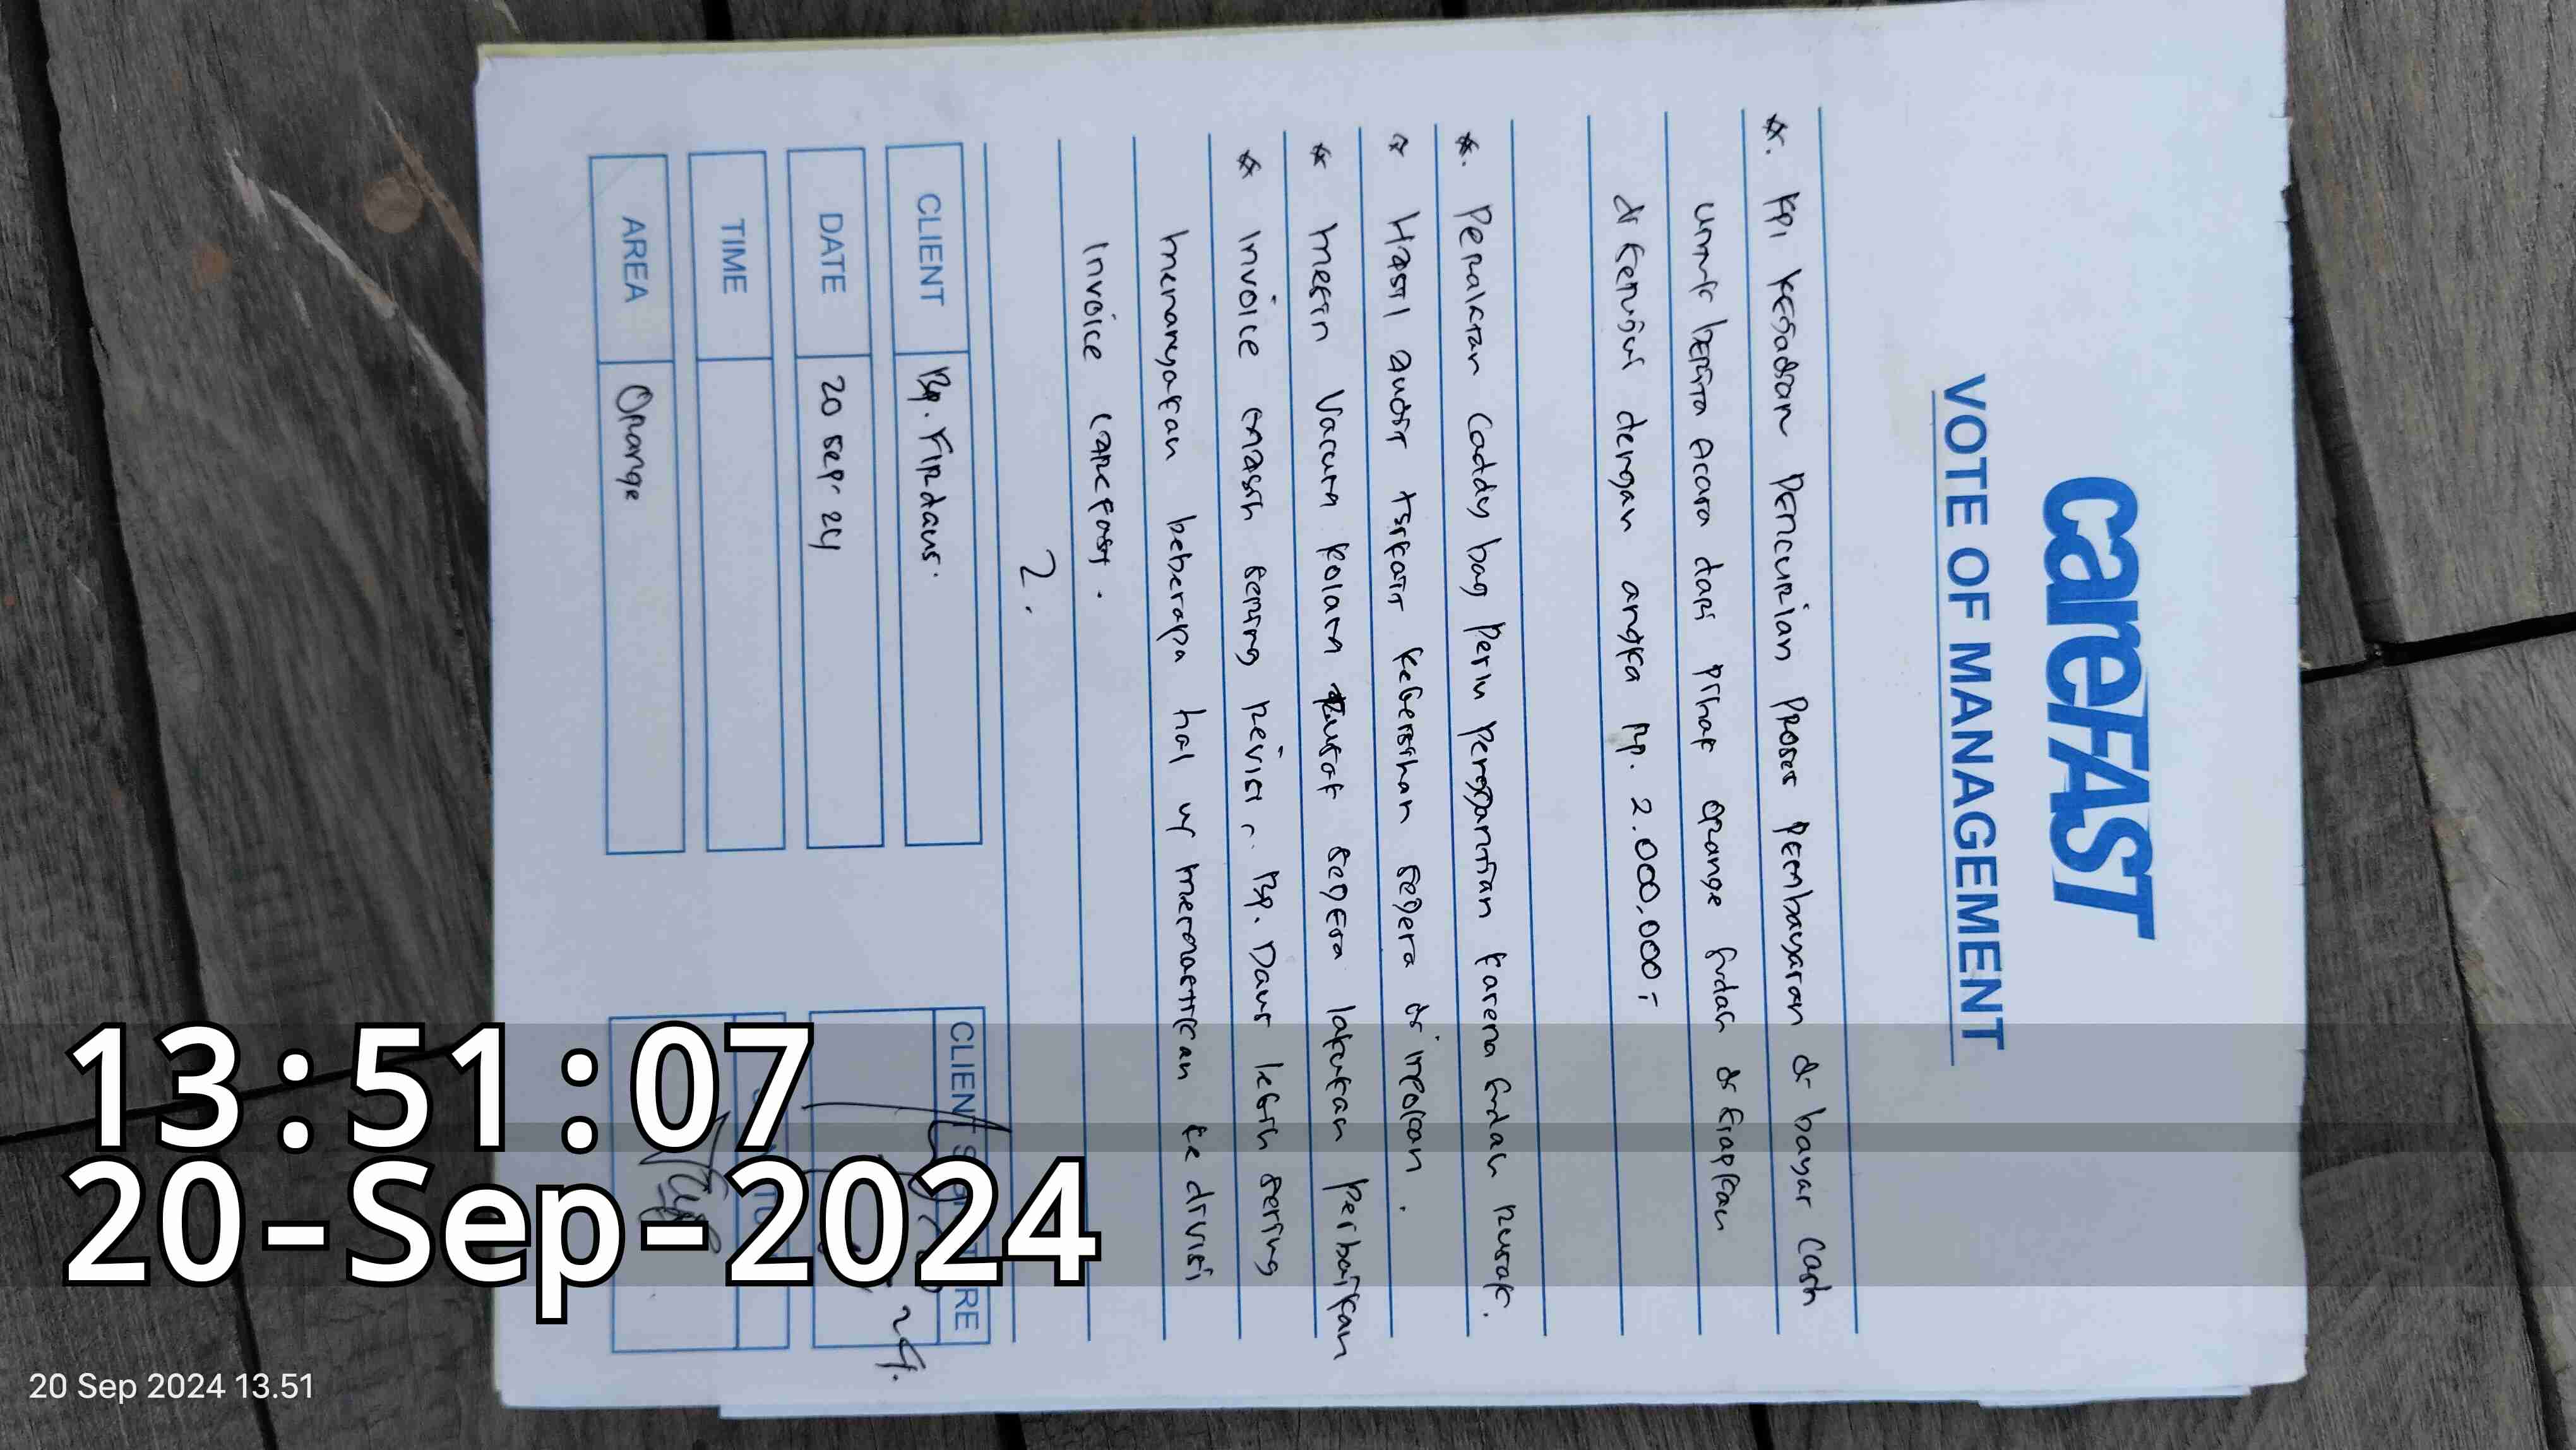 careFAST
VOTE OF MANAGEMENT
*. KPI Kejadian Pencurian proses pembayaran di bayar Cash
untuk berita acara dari pihak orange sudah di siapkan
di setujui dengan angka Rp. 2.000.000,-
*. Peralatan Caddy bag Perlu pergantian karena sudah rusak.
* Hasil audit terkait kebersihan segera di infokan.
* Mesin Vacum Kolam rusak segera lakukan perbaikan
* Invoice masih sering revisi, Bp. Daus lebih sering
menanyakan beberapa hal uy memastikan ke divisi
Invoice carefast.
2.
CLIENT Bp. Firdaus.
DATE 20 Sep. 24
TIME
AREA Orange
CLIENT
RE
13:51:07
20-Sep-2024
20 Sep 2024 13.51